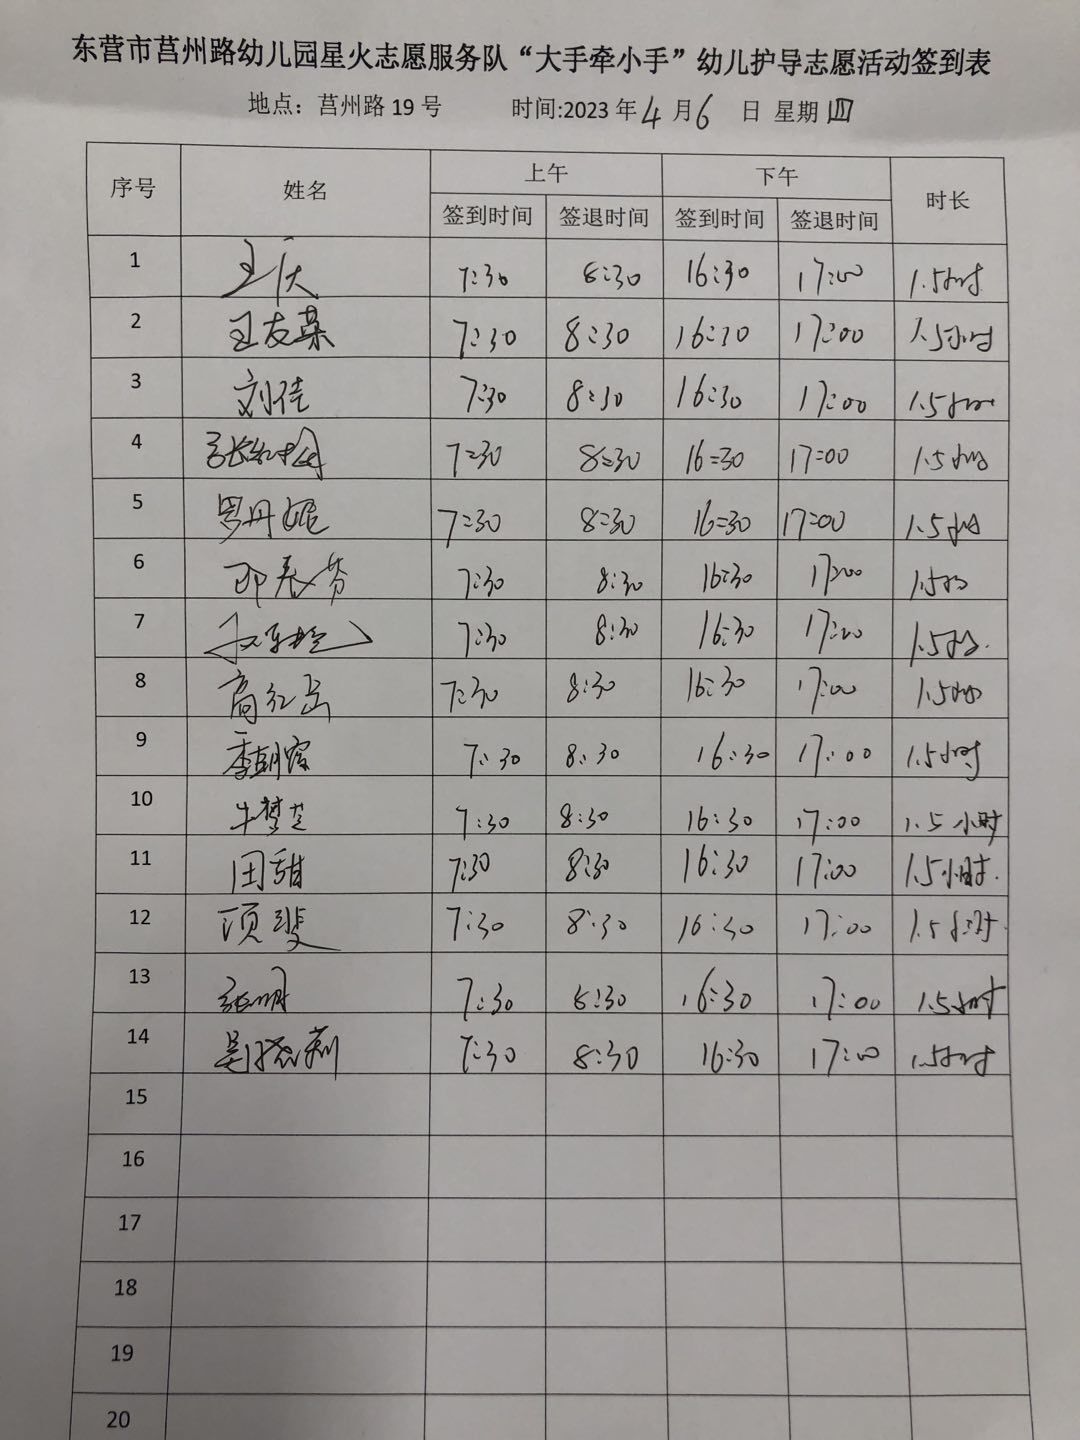 东营市莒州路幼儿园星火志愿服务队“大手牵小手”幼儿护导志愿活动签到表
地点：莒州路 19 号 时间:2023 年 4 月 6 日 星期 四
序号 姓名 上午 下午 时长
签到时间 签退时间 签到时间 签退时间
1 王庆 7:30 8:30 16:30 17:00 1.5小时
2 王友菜 7:30 8:30 16:30 17:00 1.5小时
3 刘佳 7:30 8:30 16:30 17:00 1.5小时
4 7:30 8:30 16:30 17:00 1.5小时
5 罗丹妮 7:30 8:30 16:30 17:00 1.5小时
6 邓春芬 7:30 8:30 16:30 17:00 1.5小时
7 7:30 8:30 16:30 17:00 1.5小时.
8 高红岳 7:30 8:30 16:30 17:00 1.5小时
9 季胡霞 7:30 8:30 16:30 17:00 1.5小时
10 牛梦芝 7:30 8:30 16:30 17:00 1.5小时
11 田甜 7:30 8:30 16:30 17:00 1.5小时.
12 项斐 7:30 8:30 16:30 17:00 1.5小时.
13 张明 7:30 8:30 16:30 17:00 1.5小时
14 7:30 8:30 16:30 17:00 1.5小时
15
16
17
18
19
20